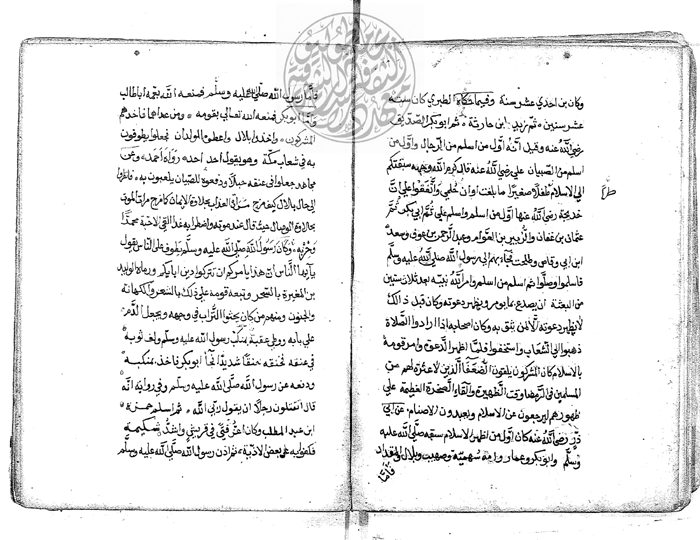 وكان بن احدى عشر سنة وفيما حكاه الطبري كان سنه
عشر سنين ثم زيد ابن حارثة ثم ابو بكر الصديق
رضي الله عنه وقيل انه اول من اسلم من الرجال واول من
اسلم من الصبيان علي رضي الله عنه قال كرم الله وجهه سبقتكم
الى الاسلام طفلا صغيرا ما بلغت اوان حلمي واتفقوا على ان
خديجة رضي الله عنها اول من اسلم واسلم علي ثم ابي بكر ثم
عثمان بن عفان والزبير بن العوام وعبد الرحمن بن عوف وسعد
ابن ابي وقاص وطلحة فجاء بهم الى رسول الله صلى الله عليه وسلم
فاسلموا وصلوا ثم اسلم من اسلم وامر الله نبيه بعد ثلاث سنين
من البعثة ان يصدع بما يؤمر ويظهر دعوته وكان قبل ذالك
لا يظهر دعوته الا لمن يثق به وكان اصحابه اذا ارادوا الصلاة
ذهبوا الى الشعاب واستخفوا فلما اظهر الدعوة وامر قومه
بالاسلام كان المشركون يلقون الضعفاء الذين لا عزة لهم من
المسلمين في الرمضا وقت الظهيرة والقاء الصخرة العظيمة على
ظهورهم ليرجعون عن الاسلام ويعبدون الاصنام عن ابي
ذر رضي الله عنه كان اول من اظهر الاسلام سبعة صلى الله عليه
وسلم وابو بكر وعمار وامه سمية وصهيب وبلال والمقداد
فاما
فاما رسول الله صلى الله عليه وسلم فمنعه الله بعمه ابا طالب
واما ابو بكر فمنعه الله تعالى بقومه ومن عداهما فاخذهم
المشركون واخذوا بلال واعطوه الولدان فجعلوا يطوفون
به في شعاب مكة وهو يقول احد احد رواه احمد وعن
مجاهد جعلوا في عنقه حبلا ودفعوه للصبيان يلعبون به فانظر
الى حال بلال كيف مزج مرارة العذاب بحلاوة الايمان كما مزج مرارة الموت
بحلاوة الوصال حيث قال عند موته واطرباه غدا القى الاحبة محمدا
وحزبه وكان رسول الله صلى الله عليه وسلم يطوف على الناس يقول
يا ايها الناس ان هذا يامركم ان تتركوا دين ابايكم ورماه الوليد
بن المغيرة بالسحر وتبعه قومه على ذلك بالشعر والكهانة
والجنون ومنهم من كان يحثوا التراب في وجهه ويجعل الدم
على بابه ووطى عقبة بمنكب رسول الله عليه وسلم ولف ثوبه
في عنقه فخنقه خنقا شديدا فجا ابو بكر فاخذ بمنكبه
ودفعه عن رسول الله صلى الله عليه وسلم وفي رواية انه
قال اتقتلون رجلا ان يقول ربي الله ثم اسلم حمزة
ابن عبد المطلب وكان اعز فتى في قريش واشد شكيمة
فكفوا به عن بعض الاذية ثم اذن رسول الله صلى الله عليه وسلم